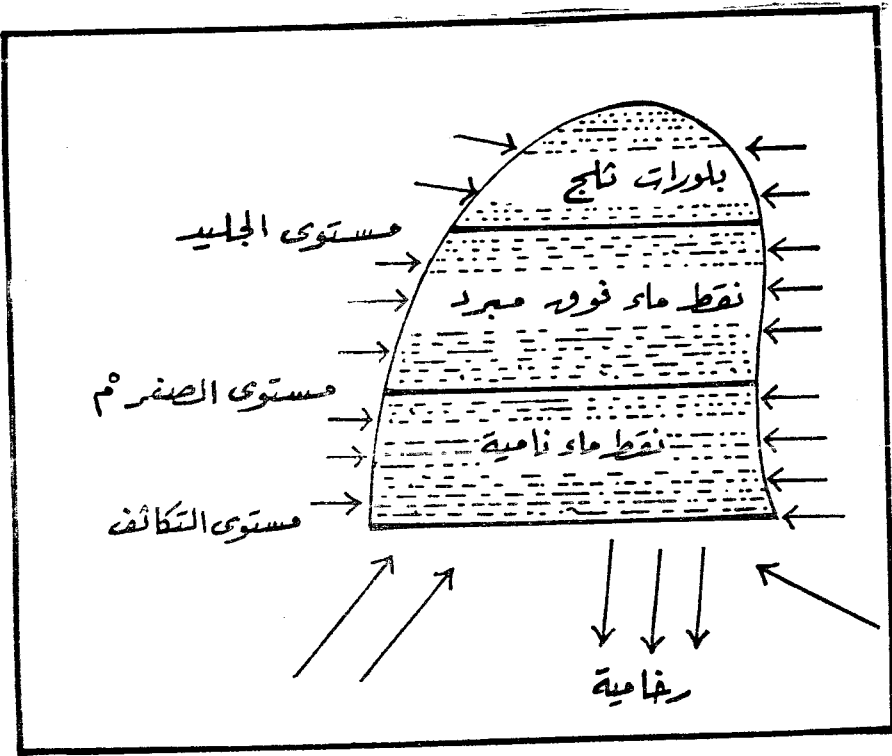 بلورات ثلج
مستوى الجليد
نقط ماء فوق مبرد
مستوى الصفر °م
نقط ماء نامية
مستوى التكاثف
رخامية